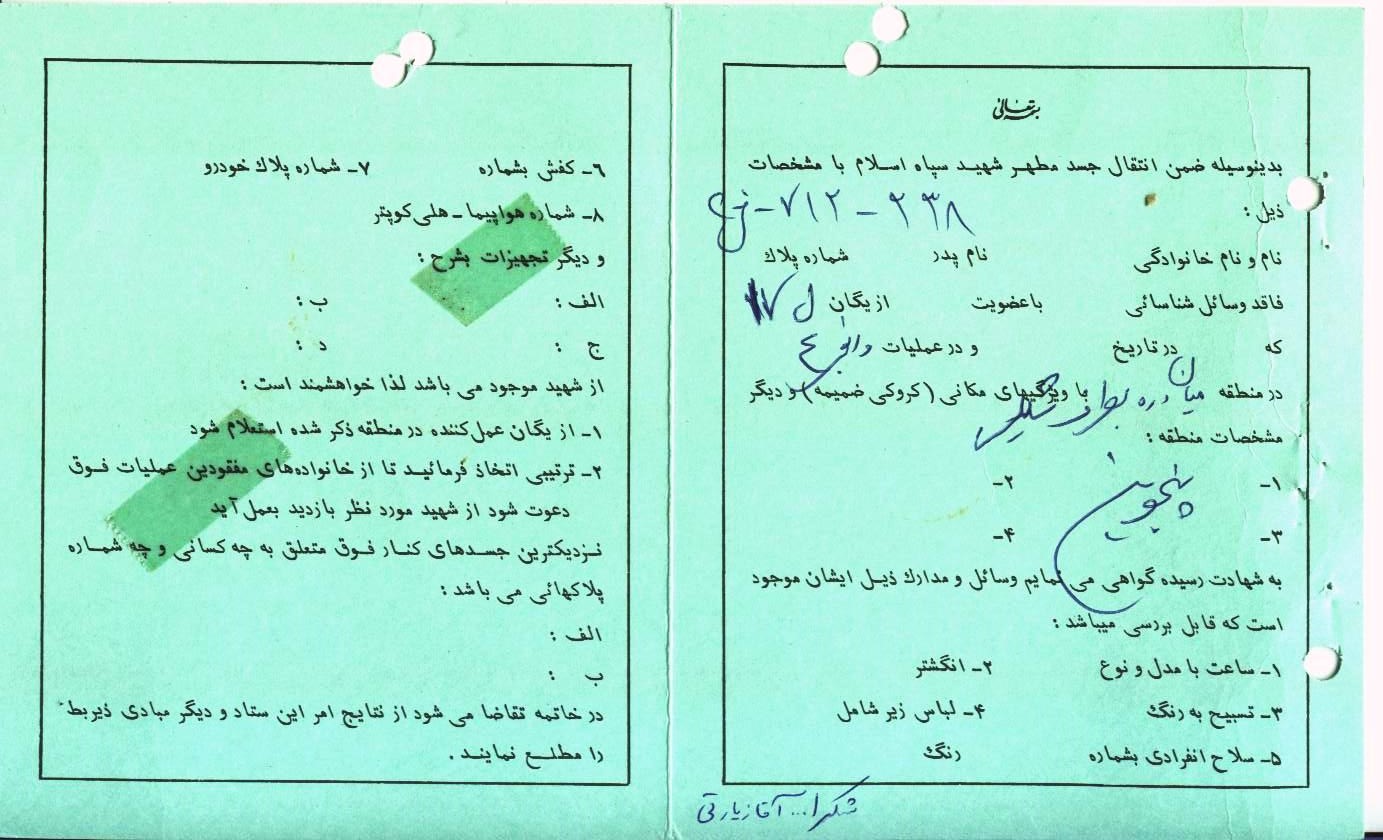 بسمه‌تعالی
بدینوسیله ضمن انتقال جسد مطهر شهید سپاه اسلام با مشخصات
ذیل : ۲۳۸ - ۷۱۲ -
نام و نام خانوادگی نام پدر شماره پلاك
فاقد وسائل شناسائی با عضویت از یگان ل ۱۷
که در تاریخ و در عملیات والفجر ۴
در منطقه با ویژگیهای مکانی ( کروکی ضمیمه ) و دیگر
مشخصات منطقه :
۱- ۲-
پنجوین
۳- ۴-
به شهادت رسیده گواهی می نمایم وسائل و مدارك ذیل ایشان موجود
است که قابل بررسی میباشد :
۱- ساعت با مدل و نوع ۲- انگشتر
۳- تسبیح به رنگ ۴- لباس زیر شامل
۵- سلاح انفرادی بشماره رنگ
آقا زیارتی
۶- کفش بشماره ۷- شماره پلاك خودرو
۸- شماره هواپیما - هلی کوپتر
و دیگر تجهیزات بشرح :
الف : ب :
ج : د :
از شهید موجود می باشد لذا خواهشمند است :
۱- از یگان عمل کننده در منطقه ذکر شده استعلام شود
۲- ترتیبی اتخاذ فرمائید تا از خانواده‌های مفقودین عملیات فوق
دعوت شود از شهید مورد نظر بازدید بعمل آید
نزدیکترین جسدهای کنار فوق متعلق به چه کسانی و چه شماره
پلاکهائی می باشد :
الف :
ب :
در خاتمه تقاضا می شود از نتایج امر این ستاد و دیگر مبادی ذیربط
را مطلع نمایند .